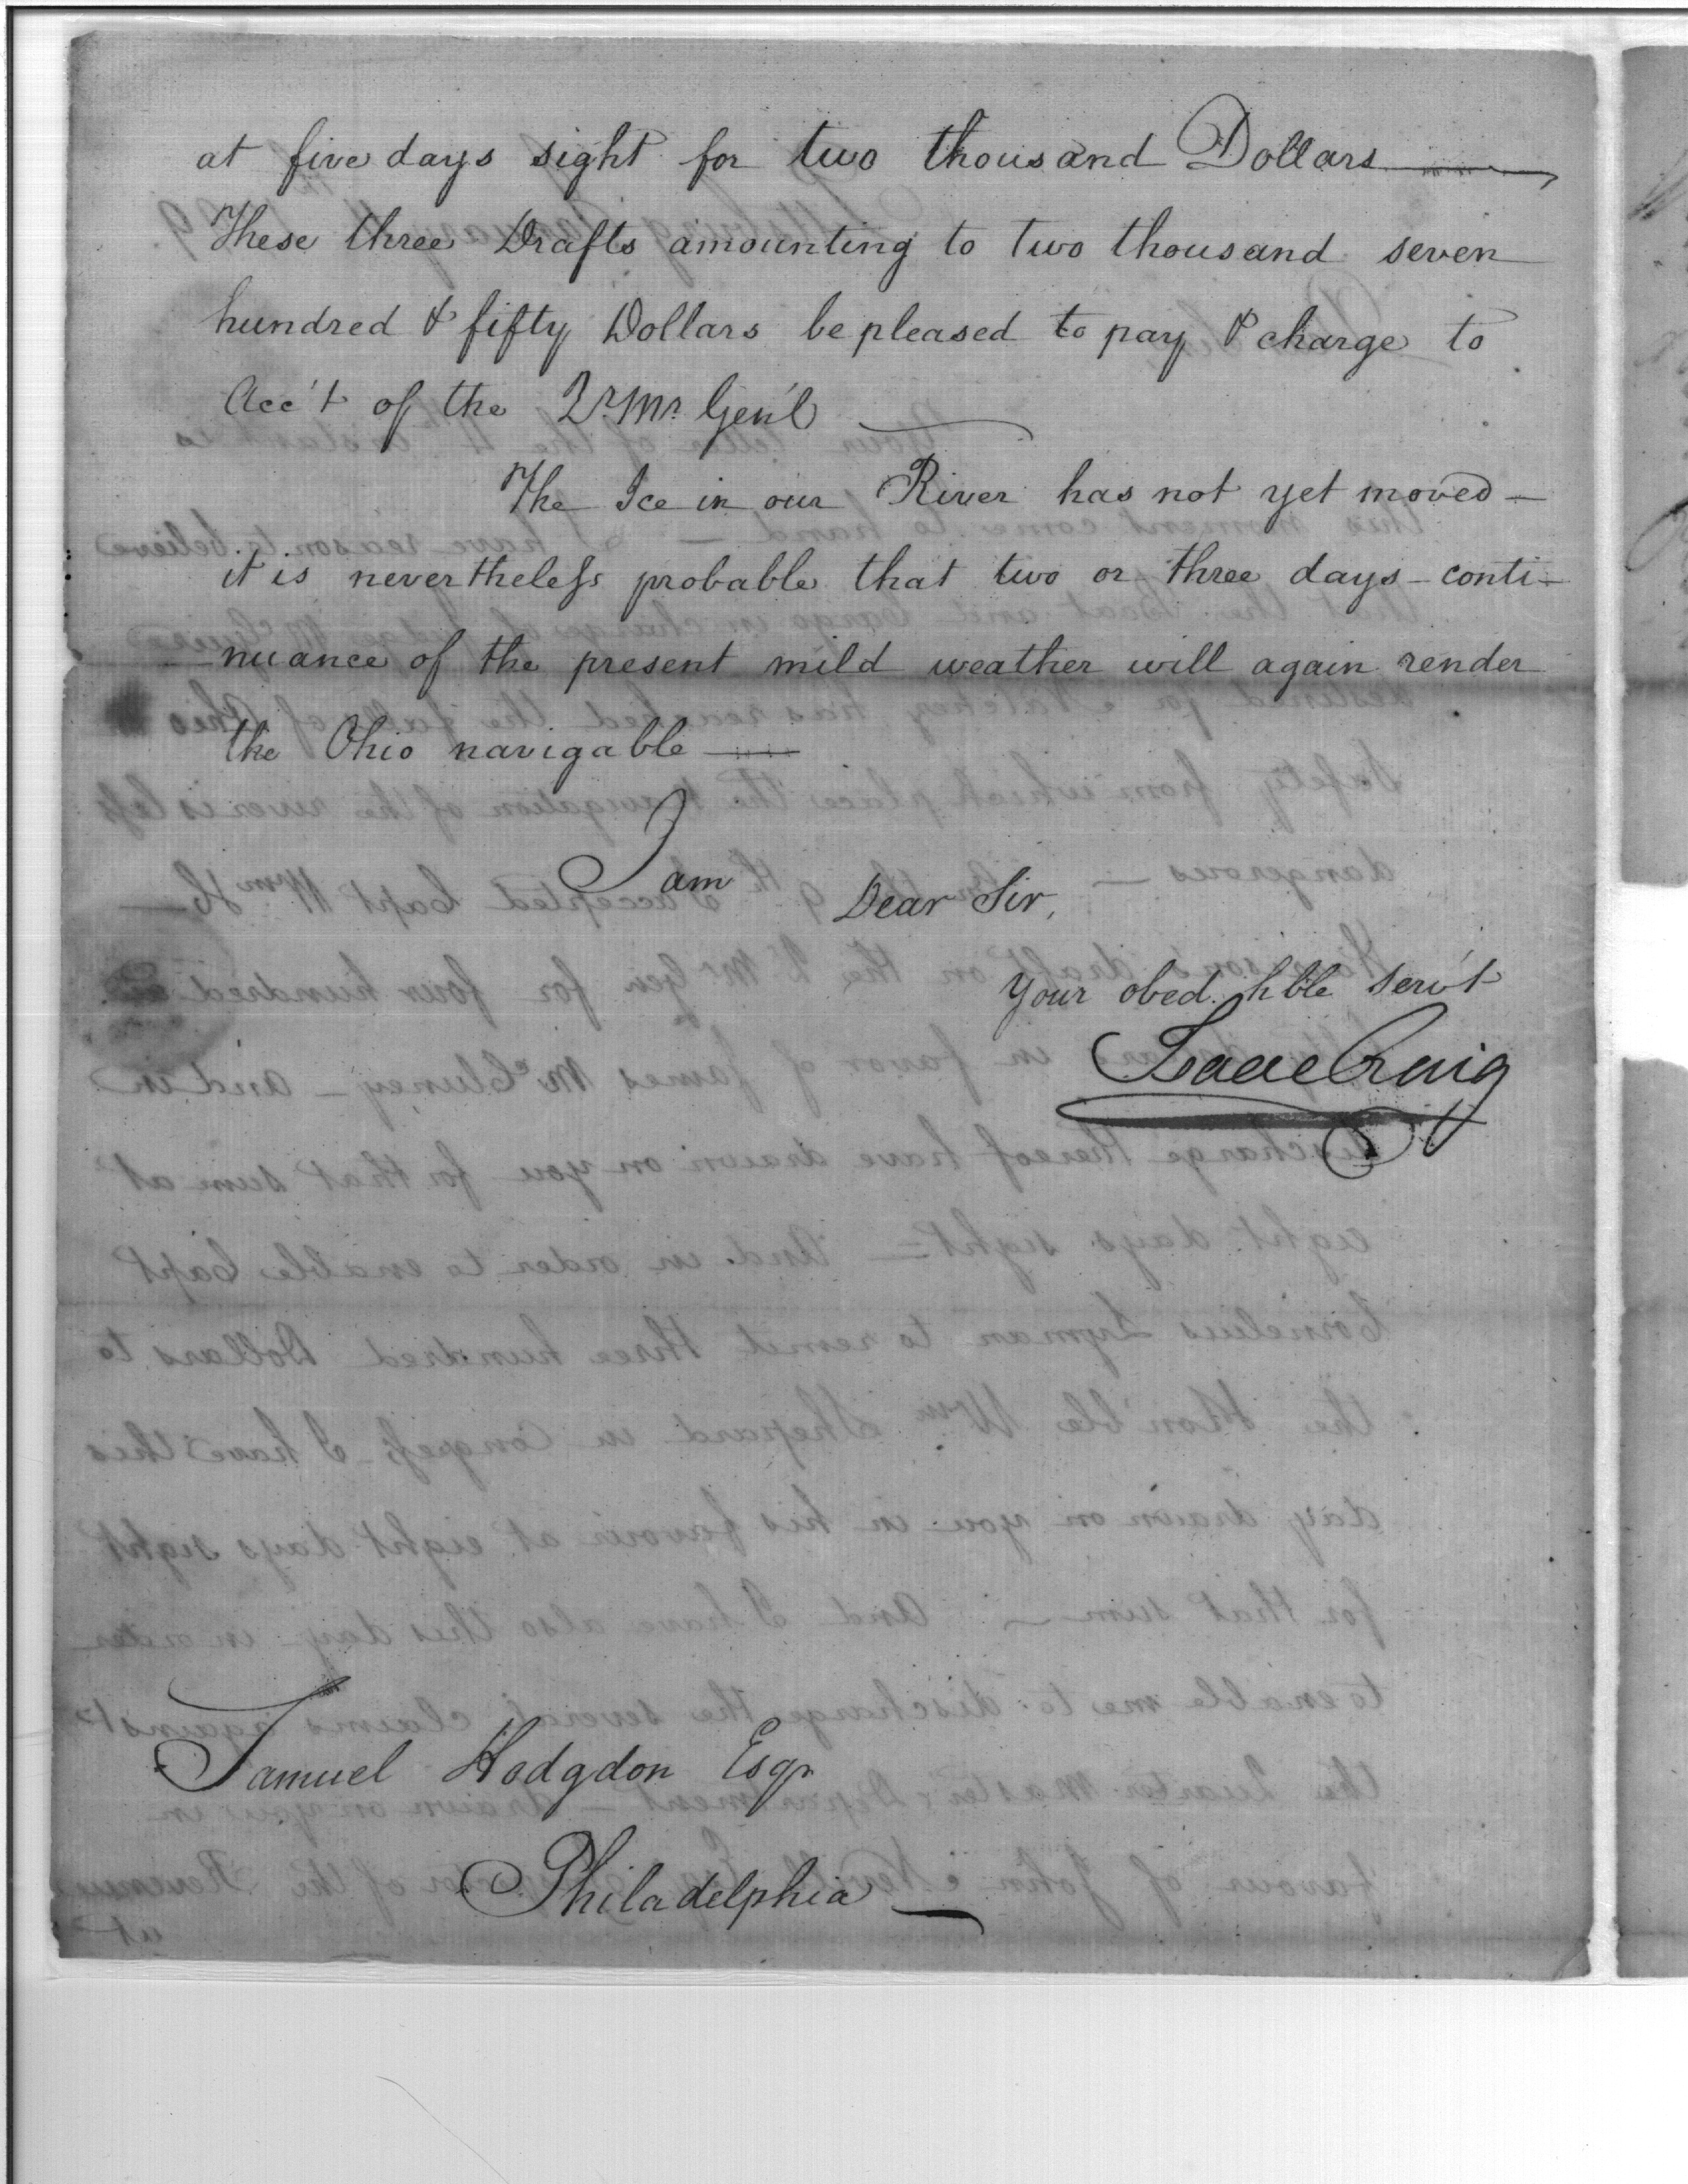 at five days sight for two thousand Dollars
These three Drafts amounting to two thousand seven
hundred & fifty Dollars be pleased to pay & charge to
Acc't of the Qr. Mr. Gen'l
The Ice in our River has not yet moved —
it is nevertheless probable that two or three days conti-
nuance of the present mild weather will again render
the Ohio navigable —
I am
Dear Sir,
Your obed. hble serv't
Isaac Craig
Samuel Hodgdon Esqr
Philadelphia —